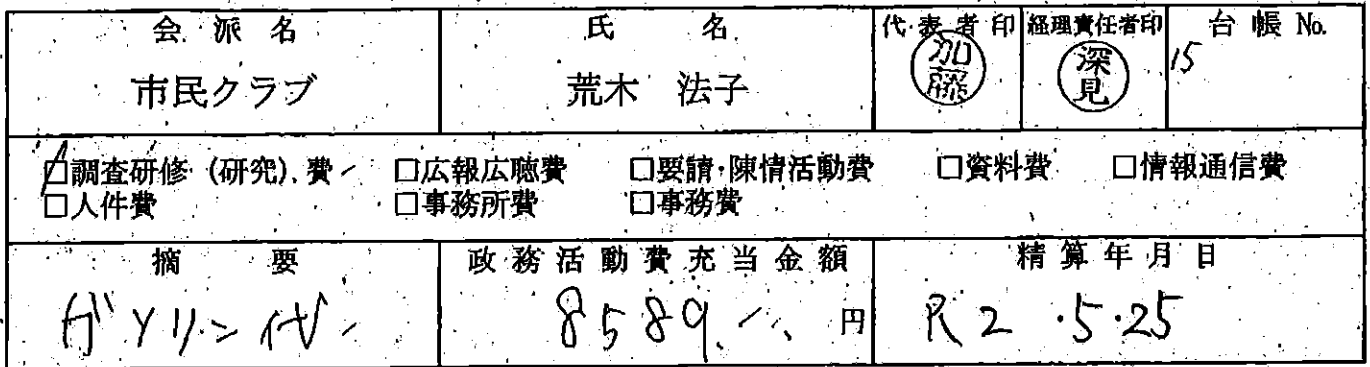 会派名 氏名 代表者印 経理責任者印 台帳No.
市民クラブ 荒木 法子 加藤 深見 15
□調査研修(研究)費 □広報広聴費 □要請・陳情活動費 □資料費 □情報通信費
□人件費 □事務所費 □事務費
摘要 政務活動費充当金額 精算年月日
ガソリン代 8589 円 R2.5.25